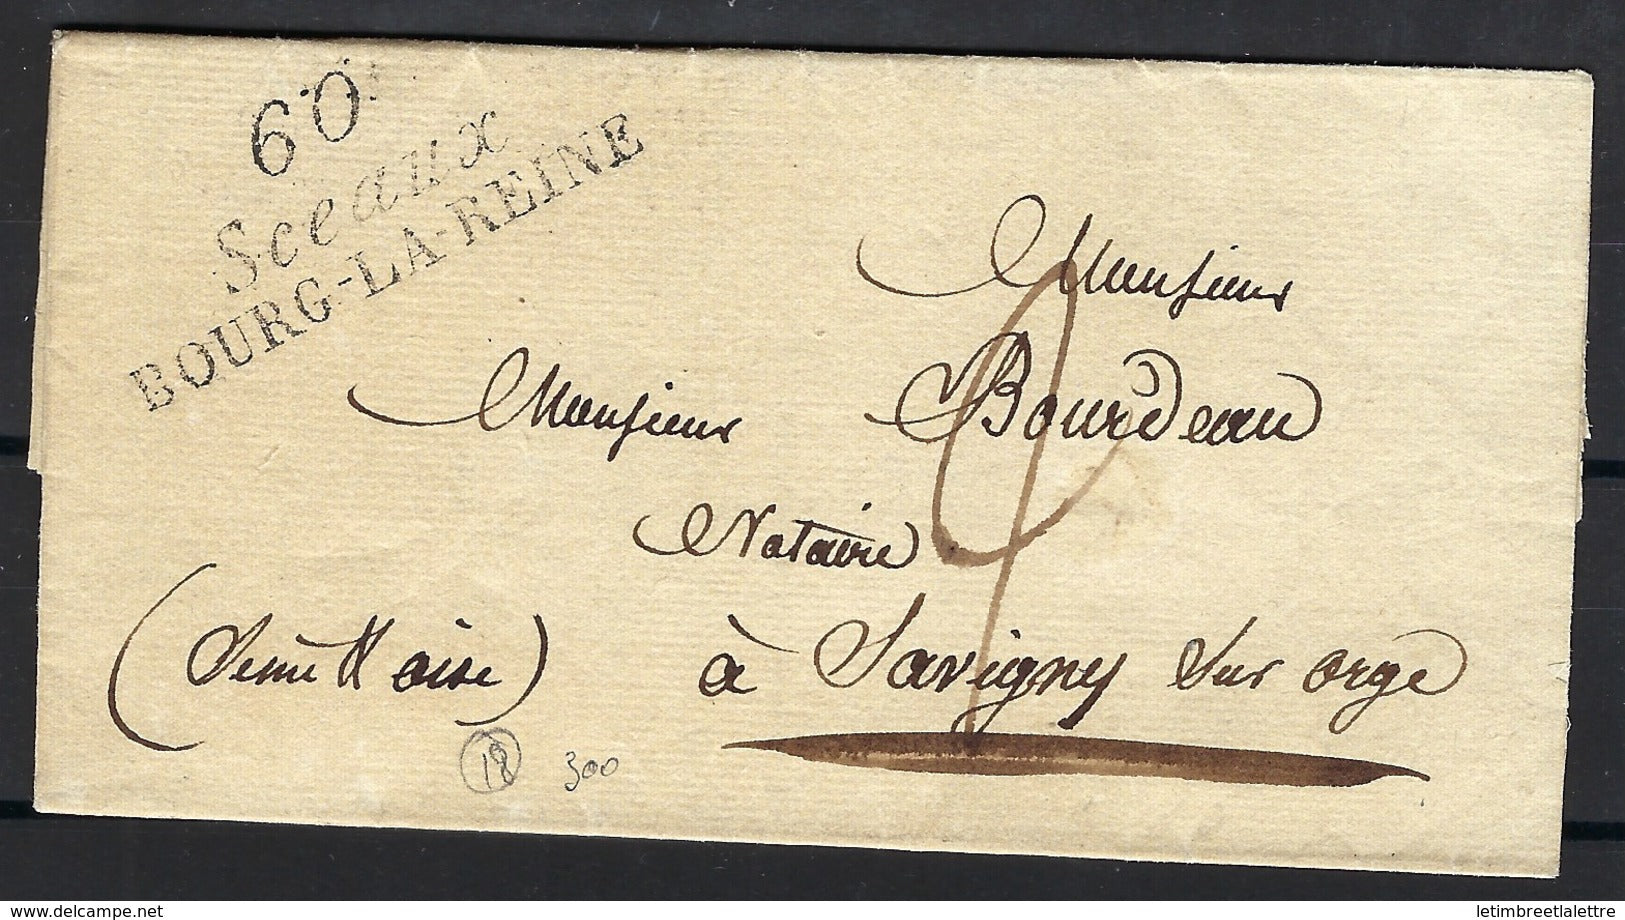 60
Sceaux
BOURG-LA-REINE
Monsieur
Monsieur Bourdeau
Notaire
(Seine & oise) à Savigny sur orge
2
18 300
delcampe.net
letimbreetlalettre